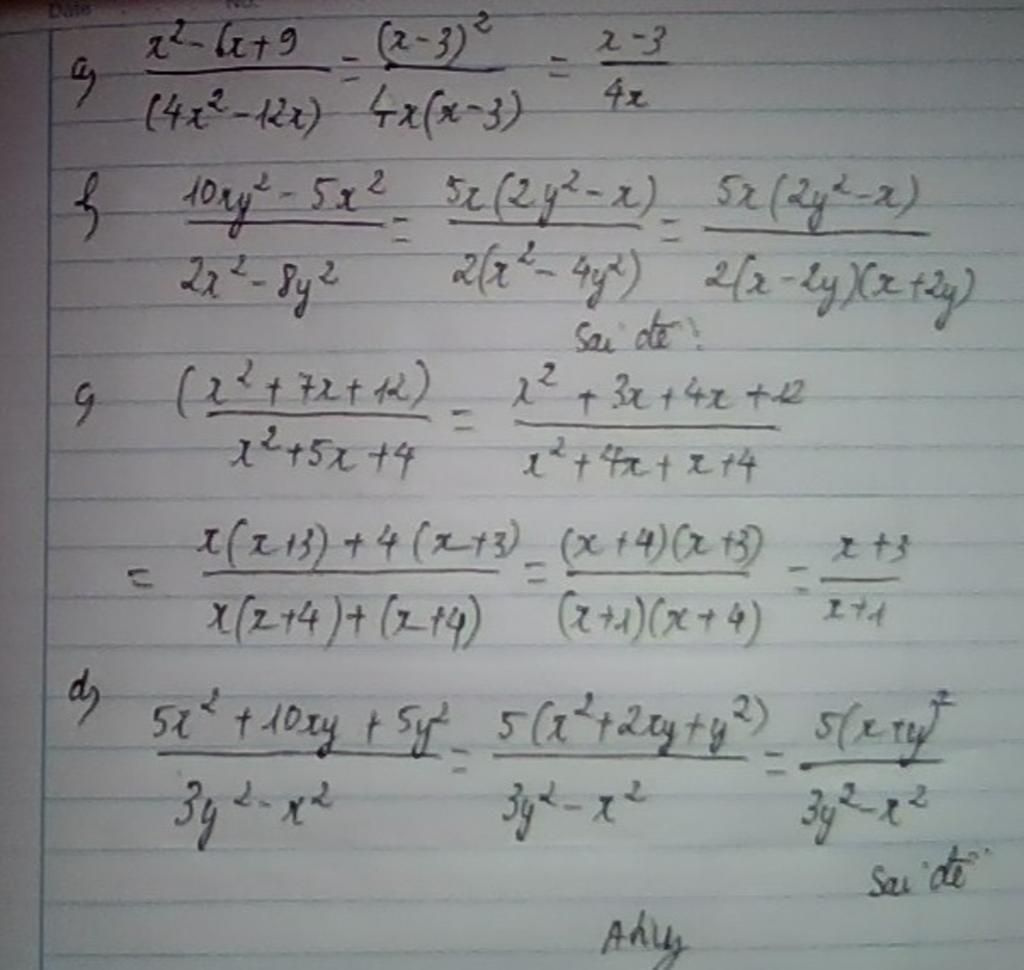 Date No.
a) x² - 6x + 9 / (4x² - 12x) = (x - 3)² / 4x(x - 3) = x - 3 / 4x
b) 10xy² - 5x² / 2x² - 8y² = 5x(2y² - x) / 2(x² - 4y²) = 5x(2y² - x) / 2(x - 2y)(x + 2y)
Sai đề!
c) (x² + 7x + 12) / x² + 5x + 4 = x² + 3x + 4x + 12 / x² + 4x + x + 4
= x(x + 3) + 4(x + 3) / x(x + 4) + (x + 4) = (x + 4)(x + 3) / (x + 1)(x + 4) = x + 3 / x + 1
d) 5x² + 10xy + 5y² / 3y² - x² = 5(x² + 2xy + y²) / 3y² - x² = 5(x + y)² / 3y² - x²
Sai đề